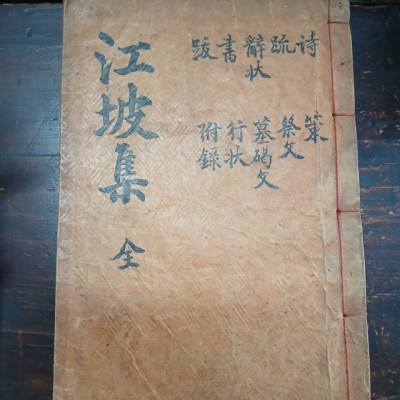 江坡集 全
诗
疏
辭状
書
跋
策
祭文
墓碣文
行状
附錄